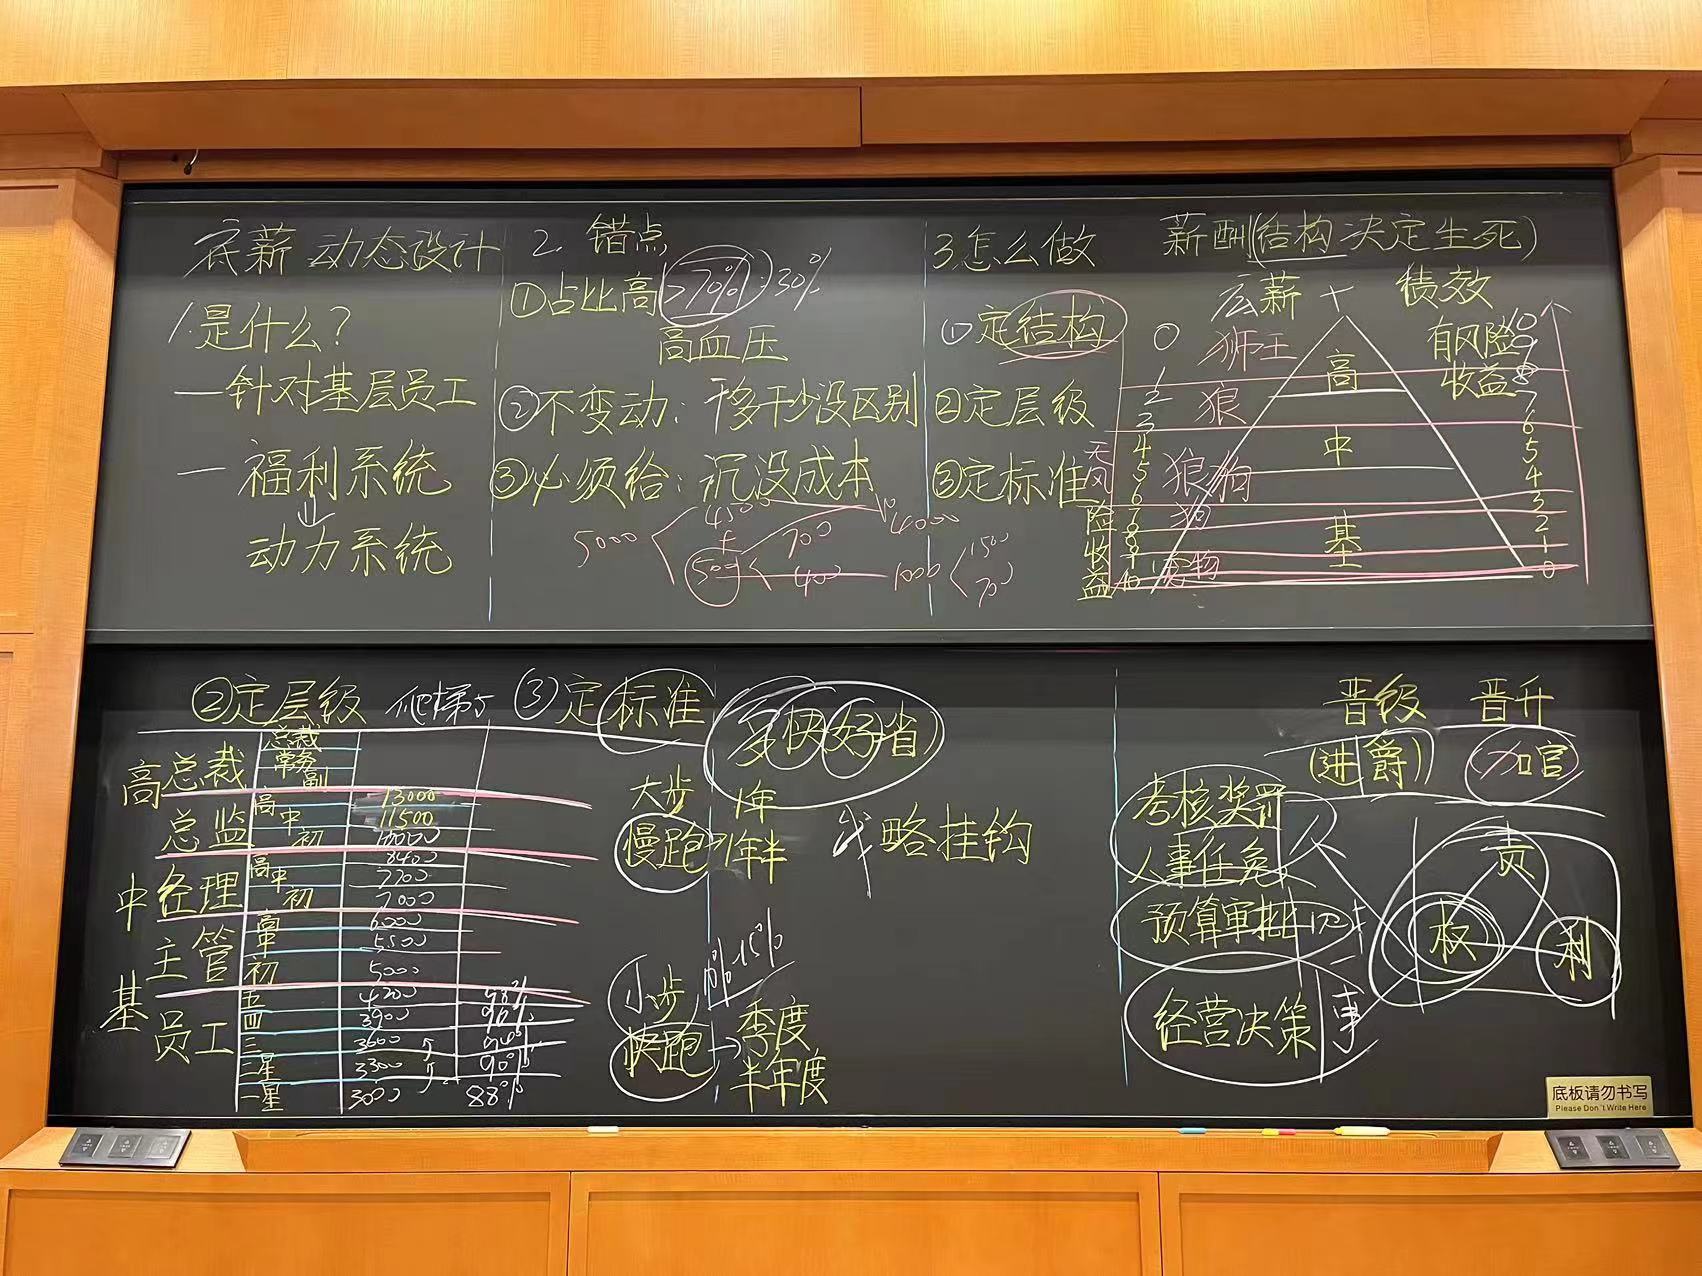 底薪 动态设计
1.是什么?
一针对基层员工
一 福利系统
动力系统
2. 错点
①占比高 >70% : 30%
高血压
②不变动: 干多干少没区别
③必须给: 沉没成本
5000
4500
+
500
700
400
4000
1000
1500
700
3.怎么做
①定结构
②定层级
③定标准
薪酬(结构 决定生死)
底薪 + 绩效
无风险收益
0 狮王
1
2 狼
3
4
5 狼狗
6
7 狗
8
9
10 宠物
高
中
基
有风险
收益
10
9
8
7
6
5
4
3
2
1
0
②定层级 爬梯子 ③定标准
高 总裁 总裁
常务
副
总监 高 13000
中 11500
初 10000
中 经理 高 8400
中 7700
初 7000
主管 高 6000
中 5500
初 5000
基 员工 五 4200 98%
四 3900 96%
三 3600
二星 3300 90%
一星 3000 88%
多快好省
大步 1年
慢跑→1年半
战略挂钩
小步 10%-15%
快跑→季度
半年度
晋级 晋升
(进爵) 加官
考核奖罚
人事任免
人
预算审批
经营决策
事
责
权
利
底板请勿书写
Please Don't Write Here